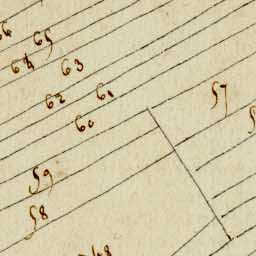 66
65
64
63
62
61
60
59
58
57